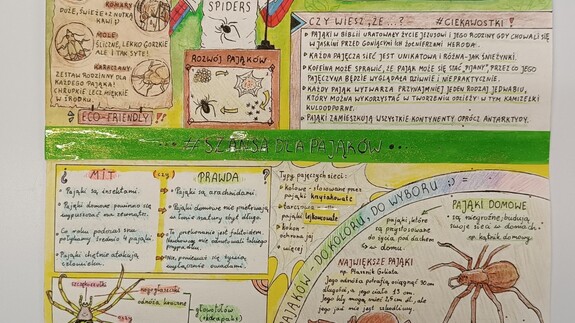 KOMARY
DUŻE, ŚWIEŻE + Z NUTKĄ
KAWIJ
MOLE
ŚLICZNE, LEKKO GORZKIE
ALE I TAK SYTE!
KARACZANY
ZESTAW RODZINNY DLA
KAŻDEGO PAJĄKA!
CHRUPKIE LECZ MIĘKKIE
W ŚRODKU.
ECO-FRIENDLY !!
SPIDERS
ROZWÓJ PAJĄKÓW
CZY WIESZ, ŻE...? #CIEKAWOSTKI!
PAJĄKI W BIBLII URATOWAŁY ŻYCIE JEZUSOWI I JEGO RODZINY GDY CHOWALI SIĘ
W JASKINI PRZED GONIĄCYMI ICH ŻOŁNIERZAMI HERODA.
KAŻDA PAJĘCZA SIEĆ JEST UNIKATOWA I RÓŻNA-JAK ŚNIEŻYNKI.
KOFEINA MOŻE SPRAWIĆ, ŻE PAJĄK MOŻE SIĘ STAĆ „PIJANY", PRZEZ CO JEGO
PAJĘCZYNA BĘDZIE WYGLĄDAŁA DZIWNIE I NIEPRAKTYCZNIE.
KAŻDY PAJĄK WYTWARZA PRZYNAJMNIEJ JEDEN RODZAJ JEDWABIU,
KTÓRY MOŻNA WYKORZYSTAĆ W TWORZENIU ODZIEŻY W TYM KAMIZELKI
KULOODPORNE.
PAJĄKI ZAMIESZKUJĄ WSZYSTKIE KONTYNENTY OPRÓCZ ANTARKTYDY.
#SZANSA DLA PAJĄKÓW
MIT
czy
PRAWDA
Pająki są insektami.
Pająki są arachnidami.
Pająki domowe powinno się
wypuszczać na zewnątrz.
Pająki domowe nie przetrwają
w takie zbyt długo.
Co roku podczas snu
połykamy średnio 4 pająki.
To przekonanie jest fałszywe.
Naukowcy nie odnotowali takiego
przypadku.
Pająki chętnie atakują
człowieka.
Nie, ponieważ się żywią
wyłącznie owadami.
szczękoczułki
nogogłaszczki
odnóża kroczne
głowotułów
Typy pajęczych sieci:
kołowe - stosowane przez
pająki krzyżakowate
pająki lejkowcowate
kokon -
ochrona jaj
i więcej
PAJĄKÓW - DO KOLORU, DO WYBORU ;) =
pająki, które
są przystosowane
do życia pod dachem
w domu.
PAJĄKI DOMOWE
są niegroźne, budują
swoje sieci w domach
np. kątnik domowy.
NAJWIĘKSZE PAJĄKI
np. Ptasznik Goliata
Jego odnóża potrafią osiągnąć 30 cm
długości, a jego ciało 13 cm.
Jego kły mogą mieć 2,5 cm dł., ale
jego jad nie jest szkodliwy.